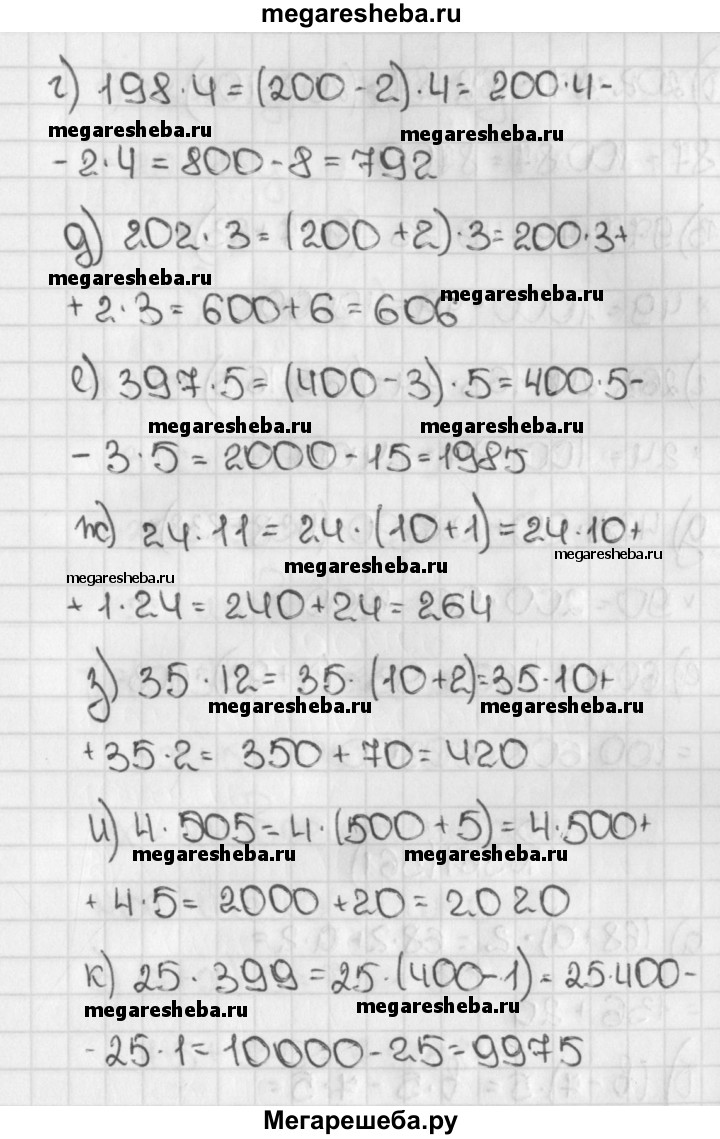 megaresheba.ru
г) 198·4=(200-2)·4= 200·4-
megaresheba.ru megaresheba.ru
-2·4=800-8=792
д) 202·3=(200+2)·3=200·3+
megaresheba.ru megaresheba.ru
+2·3=600+6=606
е) 397·5=(400-3)·5=400·5-
megaresheba.ru megaresheba.ru
-3·5=2000-15=1985
ж) 24·11=24·(10+1)=24·10+
megaresheba.ru megaresheba.ru megaresheba.ru
+1·24=240+24=264
з) 35·12=35·(10+2)=35·10+
megaresheba.ru megaresheba.ru
+35·2=350+70=420
и) 4·505=4·(500+5)=4·500+
megaresheba.ru megaresheba.ru
+4·5=2000+20=2020
к) 25·399=25·(400-1)=25·400-
megaresheba.ru megaresheba.ru
-25·1=10000-25=9975
Мегарешеба.ру